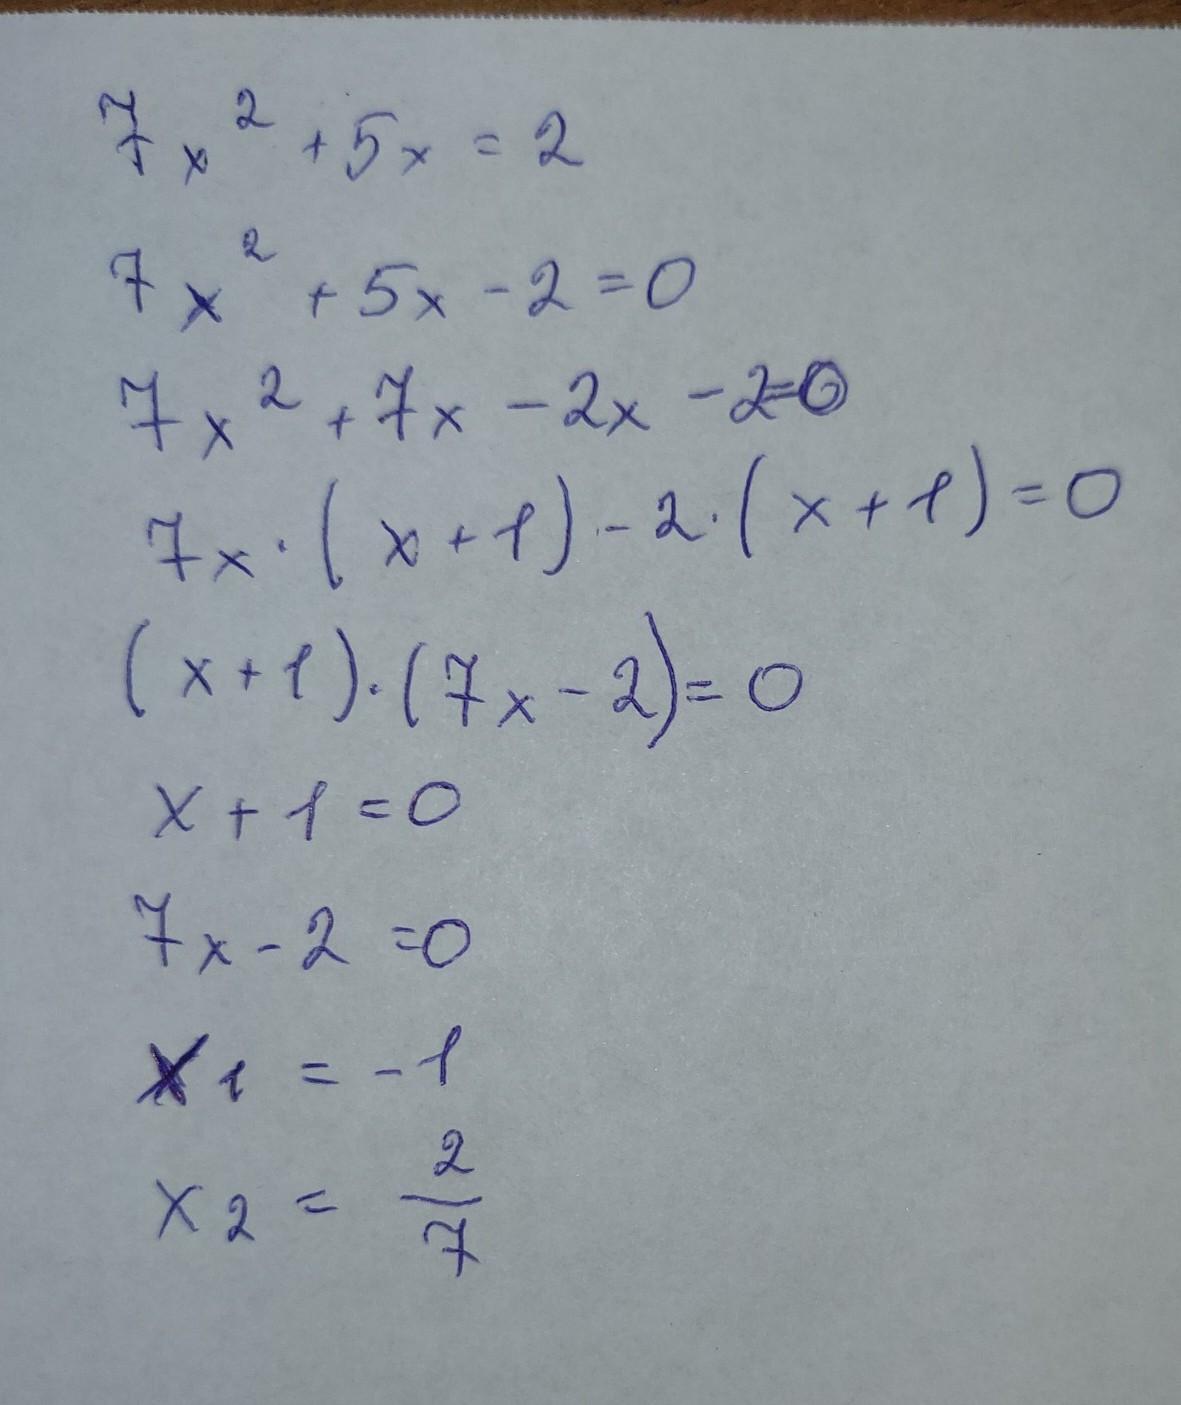 7x² + 5x = 2
7x² + 5x - 2 = 0
7x² + 7x - 2x - 2 = 0
7x · (x + 1) - 2 · (x + 1) = 0
(x + 1) · (7x - 2) = 0
x + 1 = 0
7x - 2 = 0
x1 = -1
x2 = 2/7